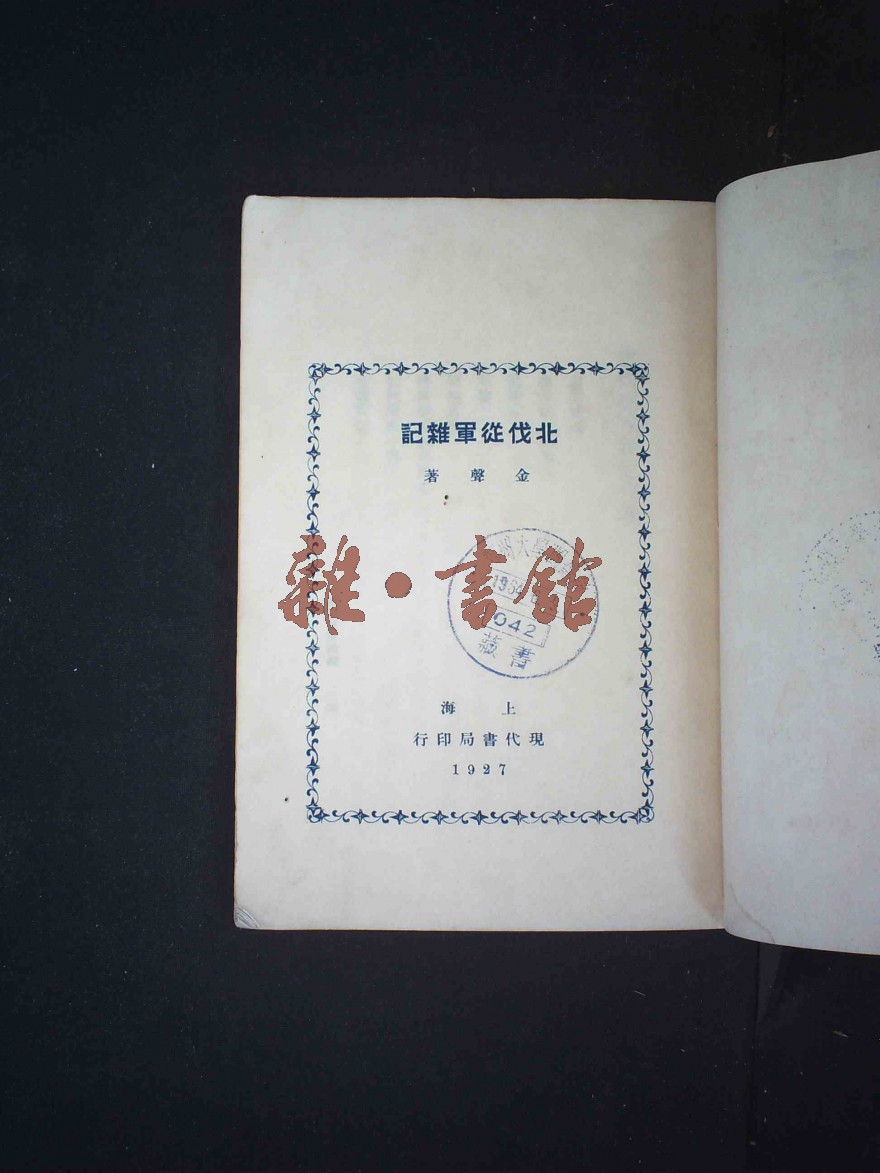 北伐從軍雜記
金聲著
雜·書館
州大學
196
042
藏書
上海
現代書局印行
1927